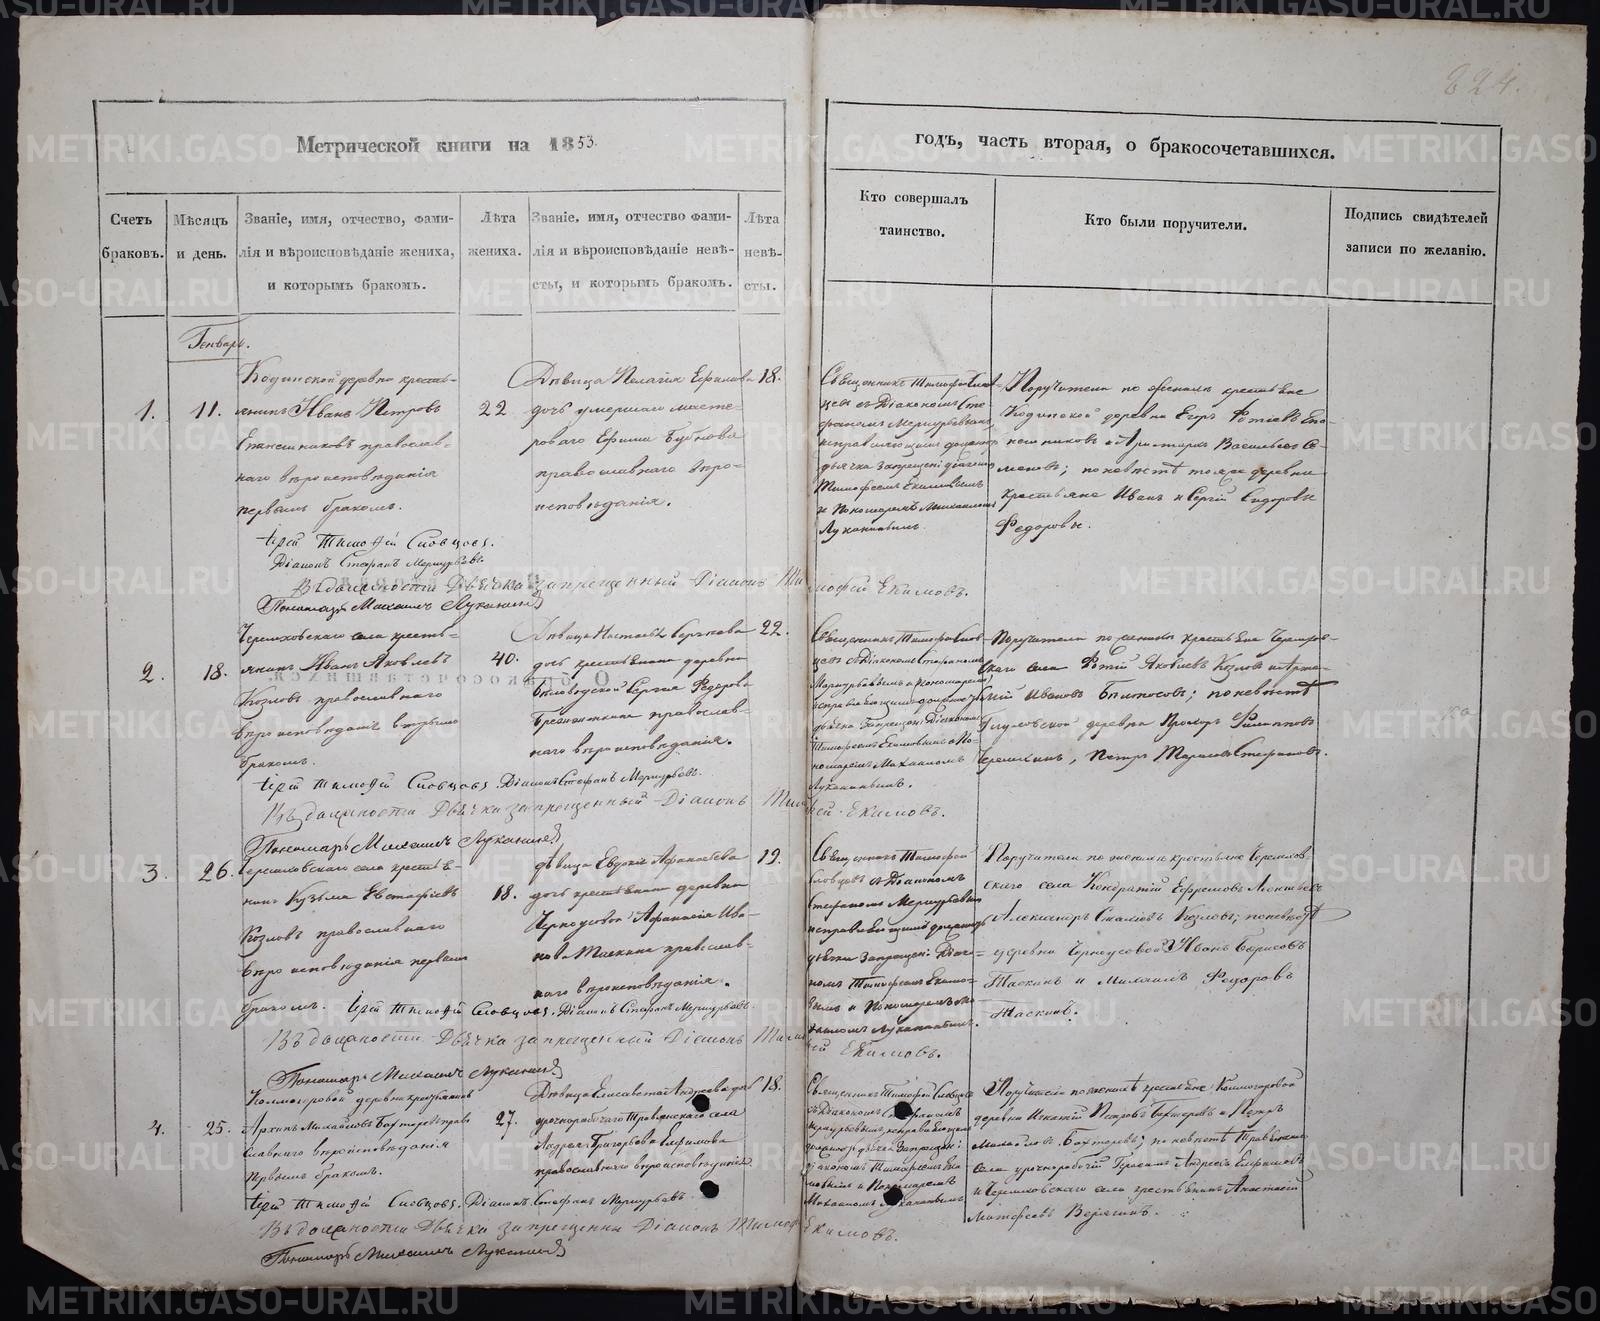 224.
Метрической книги на 1853.
годъ, часть вторая, о бракосочетавшихся.
Счетъ браковъ.
Мѣсяцъ и день.
Званіе, имя, отчество, фами-
лія и вѣроисповѣданіе жениха,
и которымъ бракомъ.
Лѣта жениха.
Званіе, имя, отчество фами-
лія и вѣроисповѣданіе невѣ-
сты, и которымъ бракомъ.
Лѣта невѣ-
сты.
Кто совершалъ
таинство.
Кто были поручители.
Подпись свидѣтелей
записи по желанію.
Генварь.
1.
11.
Кодинской деревни кресть-
янинъ Иванъ Петровъ
православ-
наго вѣроисповѣданія
первымъ бракомъ.
22
Дѣвица Пелагія Ефимова
дочь умершаго масте-
роваго Ефима Бубнова
православнаго вѣро-
исповѣданія.
18.
Священникъ Тимофей Слов-
цовъ съ Діакономъ Сте-
фаномъ
исправляющимъ должность
дьячка запрещен: діакономъ
Тимофеемъ Екимовымъ
и Пономаремъ Михаиломъ
Луканинымъ.
Поручители по женихѣ крестьяне
Кодинской деревни Егоръ Фотіевъ
и Аристархъ Васильевъ Се-
меновъ; по невѣстѣ тояже деревни
крестьяне Иванъ и Сергій Сидоровы
Федоровы.
Іерей Тимофей Словцовъ.
Діаконъ Стефанъ
Въ должности Дьячка запрещенный Діаконъ Тимофей Екимовъ.
Пономарь Михаилъ Луканинъ
2.
18.
Черемховскаго села кресть-
янинъ Иванъ Яковлевъ
Козловъ православнаго
вѣроисповѣданія вторымъ
бракомъ.
40.
Дѣвица Настасья Сергѣева
дочь крестьянина деревни
Беловодской Сергія Федорова
православ-
наго вѣроисповѣданія.
22.
Священникъ Тимофей Слов-
цовъ съ Діакономъ Стефаномъ
исправляющимъ должность
дьячка запрещен: Діакономъ
Тимофеемъ Екимовымъ и По-
номаремъ Михаиломъ
Луканинымъ.
Поручители по женихѣ крестьяне Черемхов-
скаго села Фотій Яковлевъ Козловъ и Арте-
мій Ивановъ Белоносовъ; по невѣстѣ
деревни Прохоръ Филипповъ
Черемхинъ, Петръ Тарасовъ Стефановъ.
Іерей Тимофей Словцовъ. Діаконъ Стефанъ
Въ должности Дьячка запрещенный Діаконъ Тимофей Екимовъ.
Пономарь Михаилъ Луканинъ
3.
26.
Черемховскаго села крестья-
нинъ Кузьма Евстафіевъ
Козловъ православнаго
вѣроисповѣданія первымъ
бракомъ.
18.
Дѣвица Евдокія Афанасьева
дочь крестьянина деревни
Черноусовой Афанасія Ива-
нова Таскина православ-
наго вѣроисповѣданія.
19.
Священникъ Тимофей
Словцовъ съ Діакономъ
Стефаномъ
исправляющимъ должность
дьячка запрещен: Діако-
номъ Тимофеемъ Екимо-
вымъ и Пономаремъ Ми-
хаиломъ Луканинымъ.
Поручители по женихѣ крестьяне Черемхов-
скаго села Кондратій Ефремовъ Леонтьевъ
Александръ Козловъ; по невѣстѣ
деревни Черноусовой Иванъ Борисовъ
Таскинъ и Михаилъ Федоровъ
Таскинъ.
Іерей Тимофей Словцовъ. Діаконъ Стефанъ
Въ должности Дьячка запрещенный Діаконъ Тимофей Екимовъ.
Пономарь Михаилъ Луканинъ
4.
25.
Колмогоровой деревни крестьянинъ
Архипъ Михайловъ Бахтеревъ право-
славнаго вѣроисповѣданія
первымъ бракомъ.
27.
Дѣвица Елисавета Андреева дочь
урочнорабочаго Травянскаго села
Андрея Григорьева Ефимова
православнаго вѣроисповѣданія.
18.
Священникъ Тимофей Словцовъ
съ Діакономъ Стефаномъ
исправляющимъ
должность дьячка запрещен:
Діакономъ Тимофеемъ Еки-
мовымъ и Пономаремъ
Михаиломъ Луканинымъ
Поручители по женихѣ крестьяне Колмогоровой
деревни Игнатій Петровъ Бахтеревъ и Петръ
Михайловъ Бахтеревъ; по невѣстѣ Травянскаго
села урочнорабочій Андреевъ Ефимовъ
и Черемховскаго села крестьянинъ
Матфеевъ
Іерей Тимофей Словцовъ. Діаконъ Стефанъ
Въ должности Дьячка запрещенный Діаконъ Тимофей Екимовъ.
Пономарь Михаилъ Луканинъ
METRIKI.GASO-URAL.RU